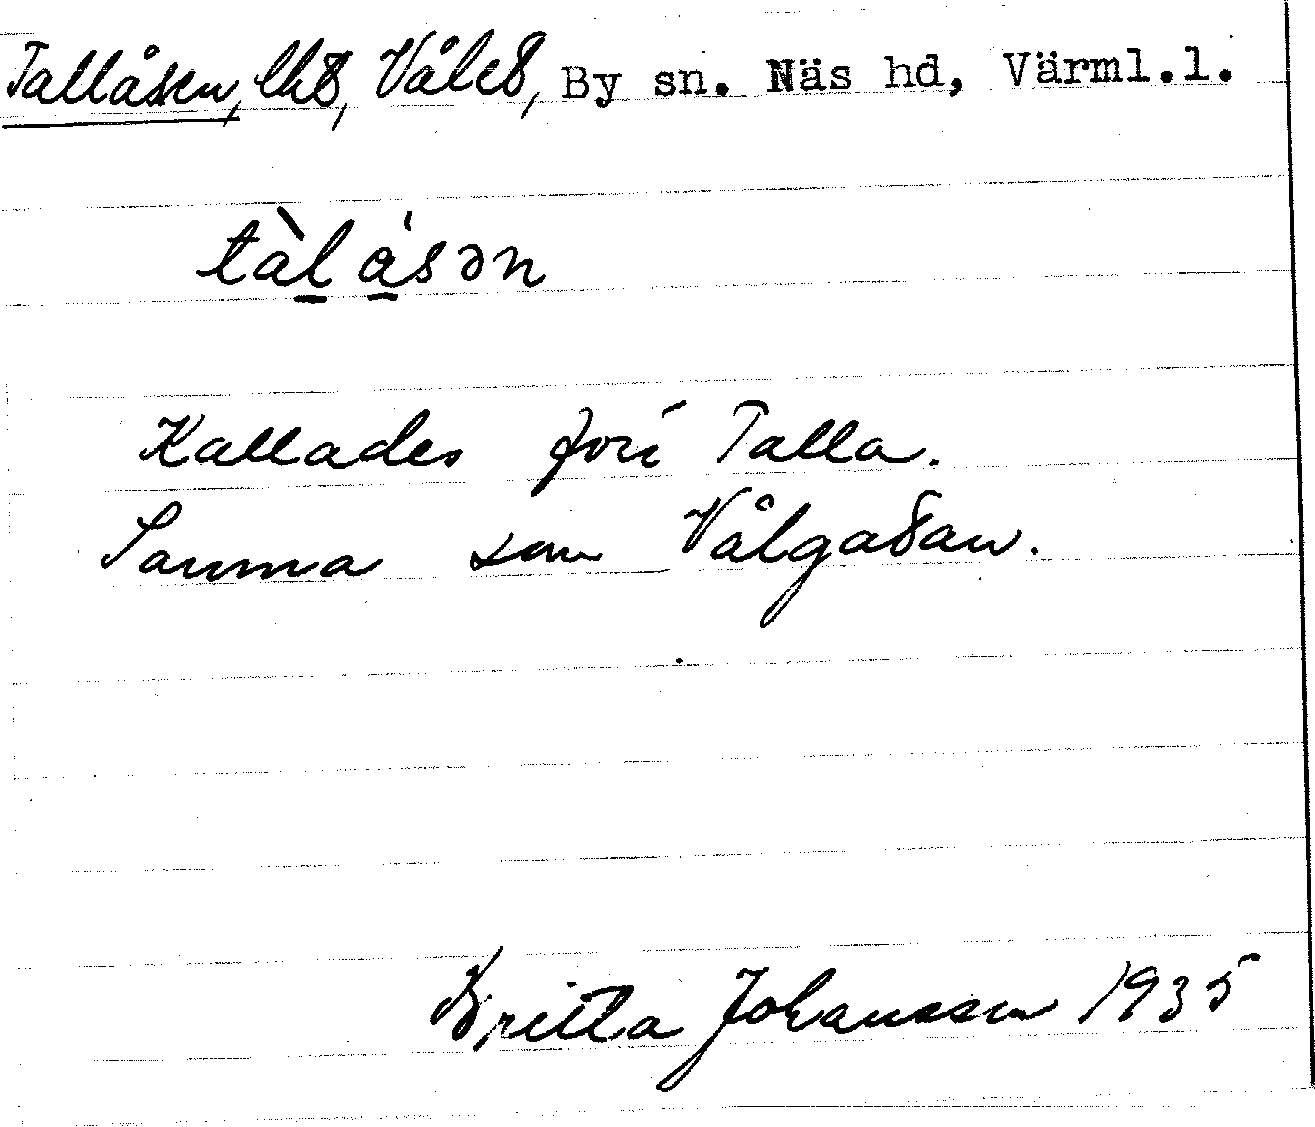 Tallåsen, lht, Våler, By sn. Näs hd, Värml.l.
tàlåsən
Kallades förr Talla.
Samma som Vålgatan.
Britta Johansson 1935